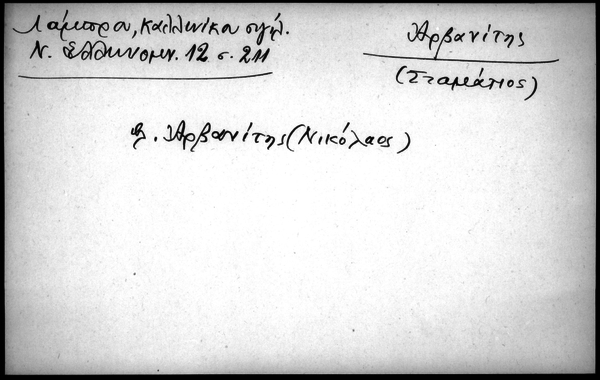 Λάμπρου, Καλλινίκου σιγίλ.
Ν. Ἑλληνομν. 12 σ. 211
Ἀρβανίτης
(Σταμάτιος)
β. Ἀρβανίτης (Νικόλαος)